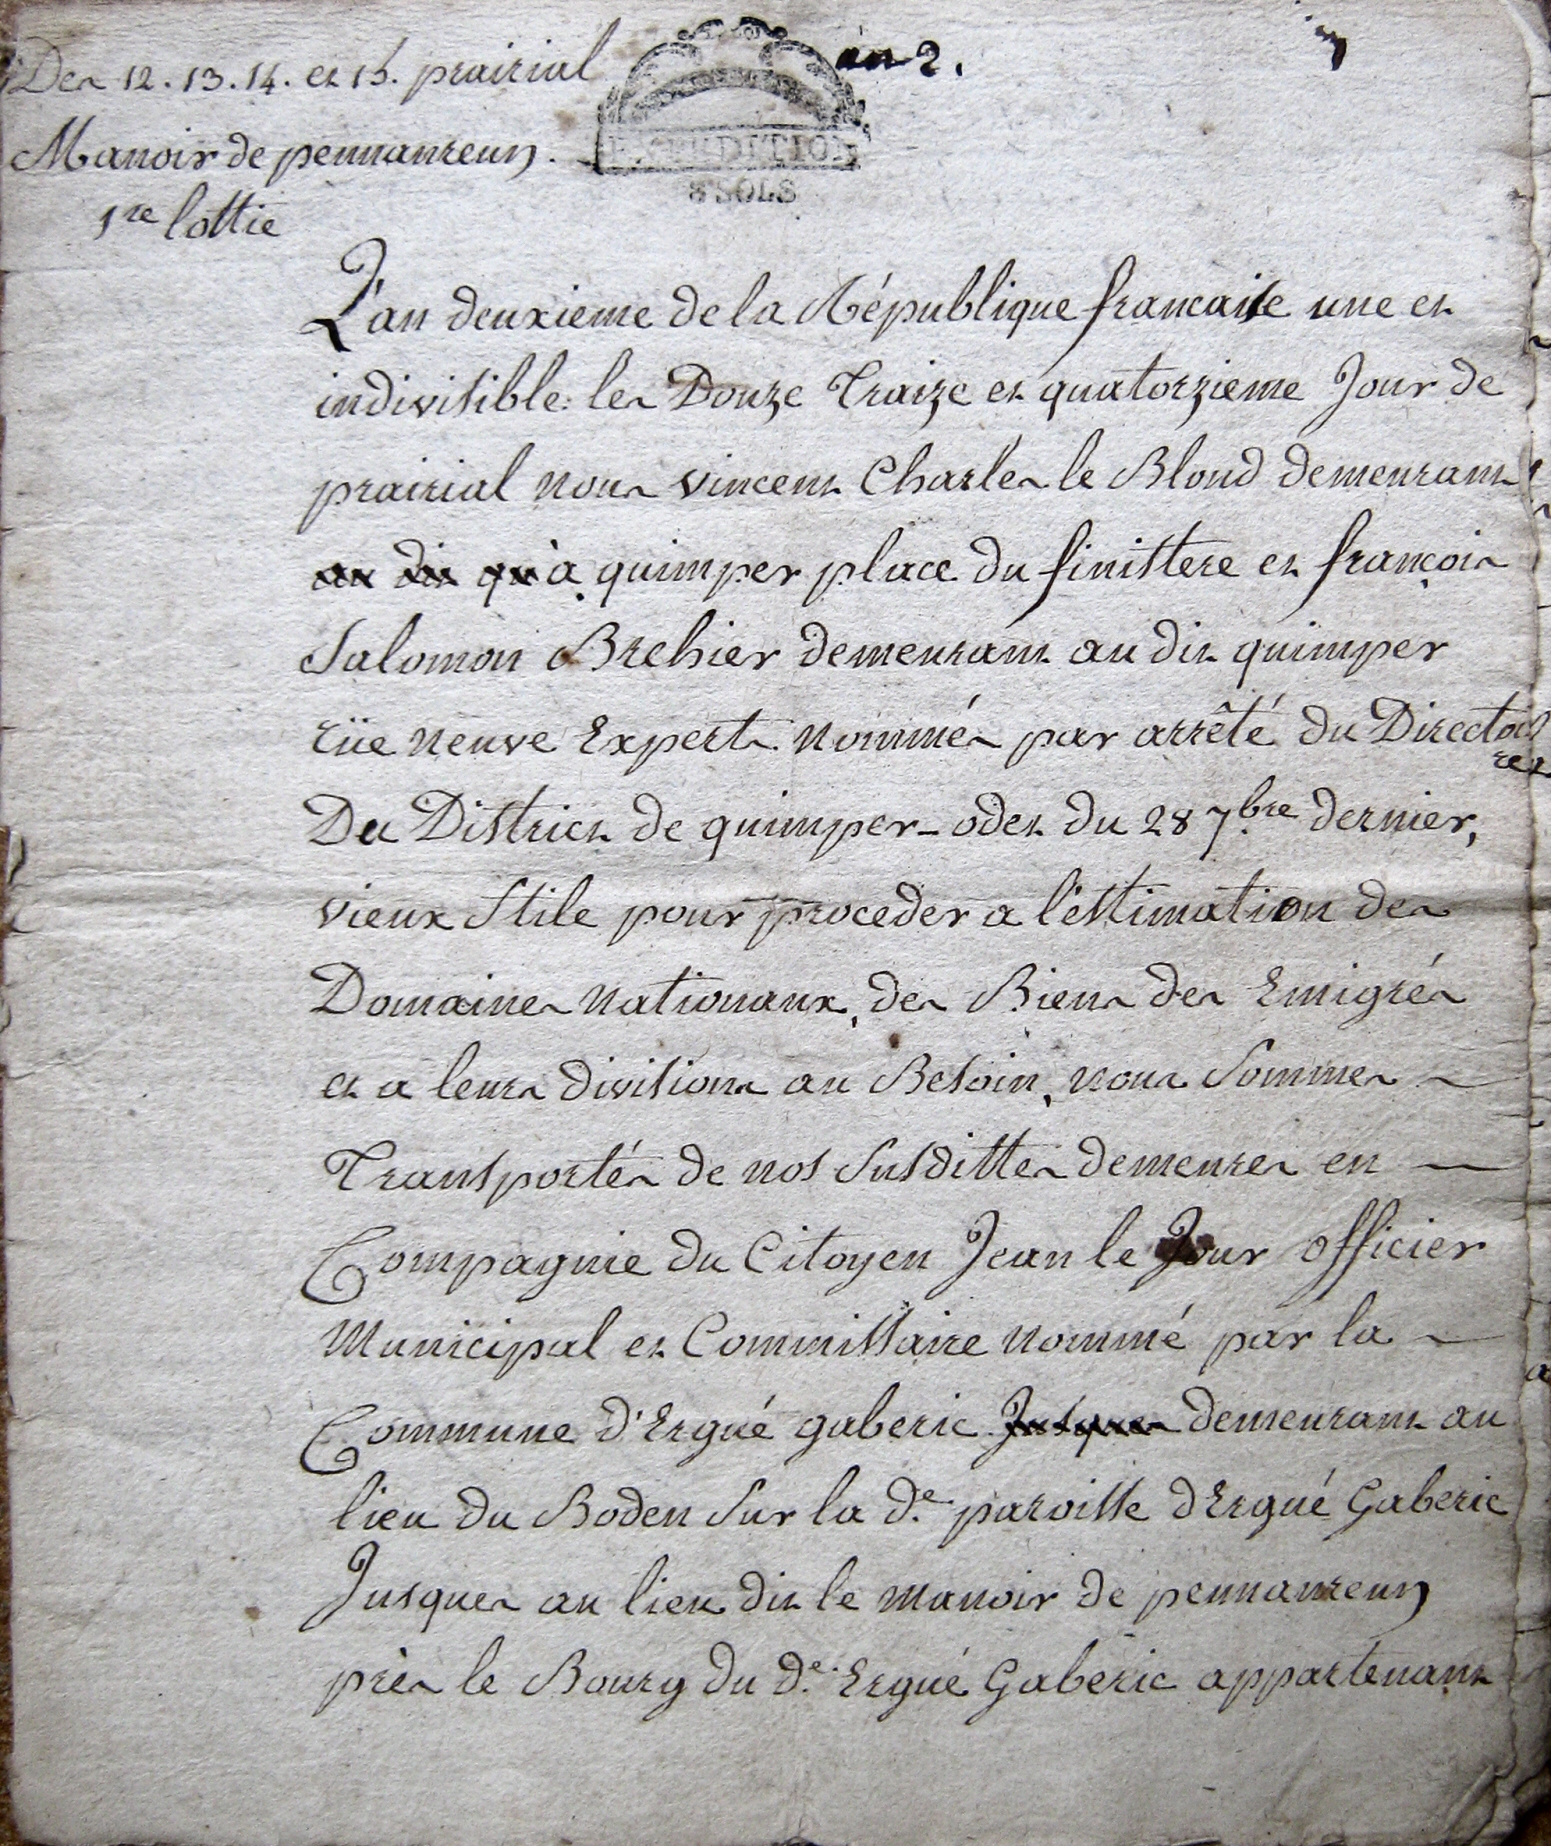 Des 12. 13. 14. et 15. prairial an 2.
EXPEDITION
8 SOLS
Manoir de pennanreun.
1re lottie
L'an deuxieme de la République francaise une et
indivisible les Douze Traize et quatorzieme Jour de
prairial nous vincent Charles le Blond demeurant
au dit qu'a quimper place du finistere et françois
Salomon Brehier demeurant au dit quimper
rüe neuve Experts nommés par arrêté du Directoi
re
Du District de quimper-odet du 28 7bre dernier,
vieux Stile pour proceder a l'estimation des
Domaines nationaux, des Biens des Emigrés
et a leurs divisions au Besoin, nous Sommes
Transportés de nos Susdittes demeures en
Compagnie du Citoyen Jean le Jour officier
Municipal et Commissaire nommé par la
Commune d'Ergué gaberic Jusques demeurant au
lieu du Boden Sur la de. paroisse d'Ergué Gaberic
Jusques au lieu dit le manoir de pennanreun
près le Bourg du de. Ergué Gaberic appartenant